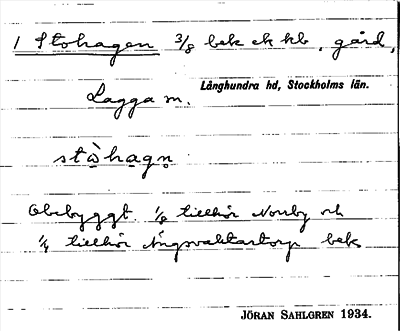 1 Stohagen 3/8 bek ek kb, gård,
Lagga sn. Långhundra hd, Stockholms län.
stòhagn
Obebyggt. 1/8 tillhör Norrby och
1/4 tillhör Ängsvaktartorp bek
JÖRAN SAHLGREN 1934.